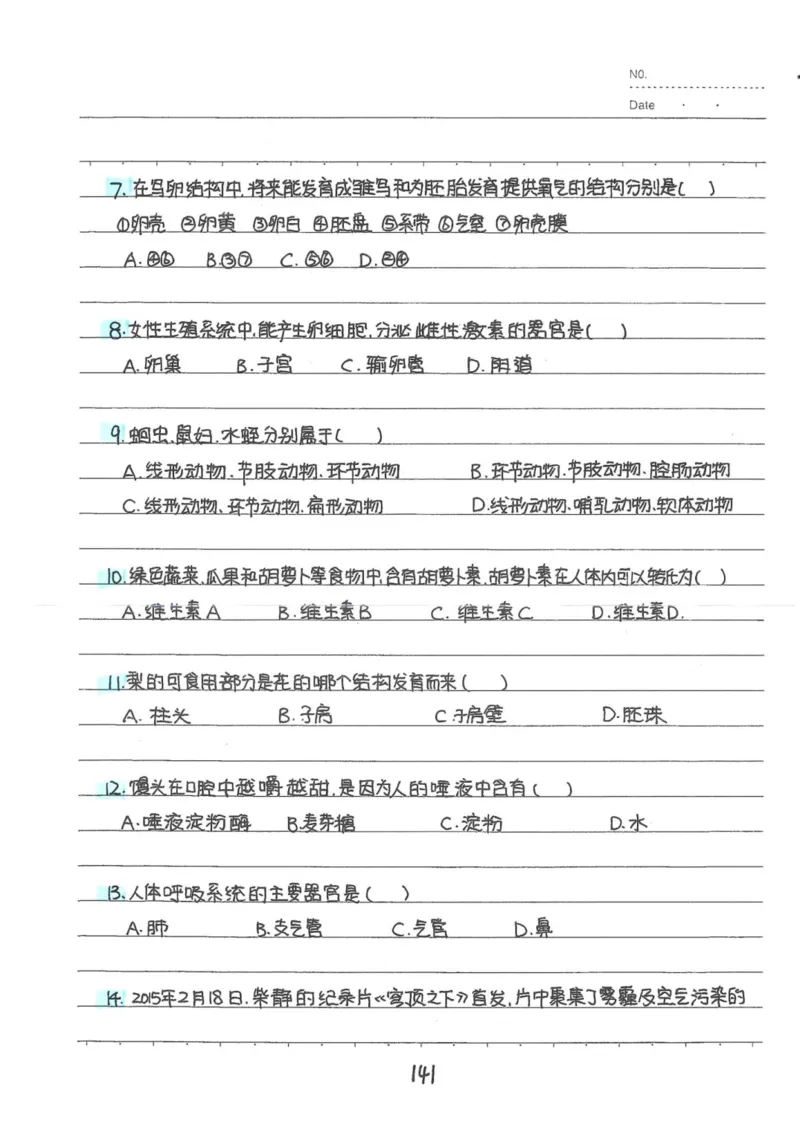 NO.
Date
7. 在鸟卵结构中,将来能发育成雏鸟和为胚胎发育提供氧气的结构分别是( )
①卵壳 ②卵黄 ③卵白 ④胚盘 ⑤系带 ⑥气室 ⑦卵壳膜
A.④⑥ B.③⑦ C.⑤⑥ D.②④
8.女性生殖系统中,能产生卵细胞,分泌雌性激素的器官是( )
A.卵巢 B.子宫 C.输卵管 D.阴道
9.蛔虫、鼠妇、水蛭分别属于( )
A.线形动物、节肢动物、环节动物 B.环节动物、节肢动物、腔肠动物
C.线形动物、环节动物、扁形动物 D.线形动物、哺乳动物、软体动物
10.绿色蔬菜、瓜果和胡萝卜等食物中,含有胡萝卜素,胡萝卜素在人体内可以转化为( )
A.维生素A B.维生素B C.维生素C D.维生素D.
11.梨的可食用部分是花的哪个结构发育而来( )
A.柱头 B.子房 C.子房壁 D.胚珠
12.馒头在口腔中越嚼越甜,是因为人的唾液中含有( )
A.唾液淀粉酶 B.麦芽糖 C.淀粉 D.水
13.人体呼吸系统的主要器官是( )
A.肺 B.支气管 C.气管 D.鼻
14. 2015年2月18日,柴静的纪录片《穹顶之下》首发,片中聚集了雾霾及空气污染的
141